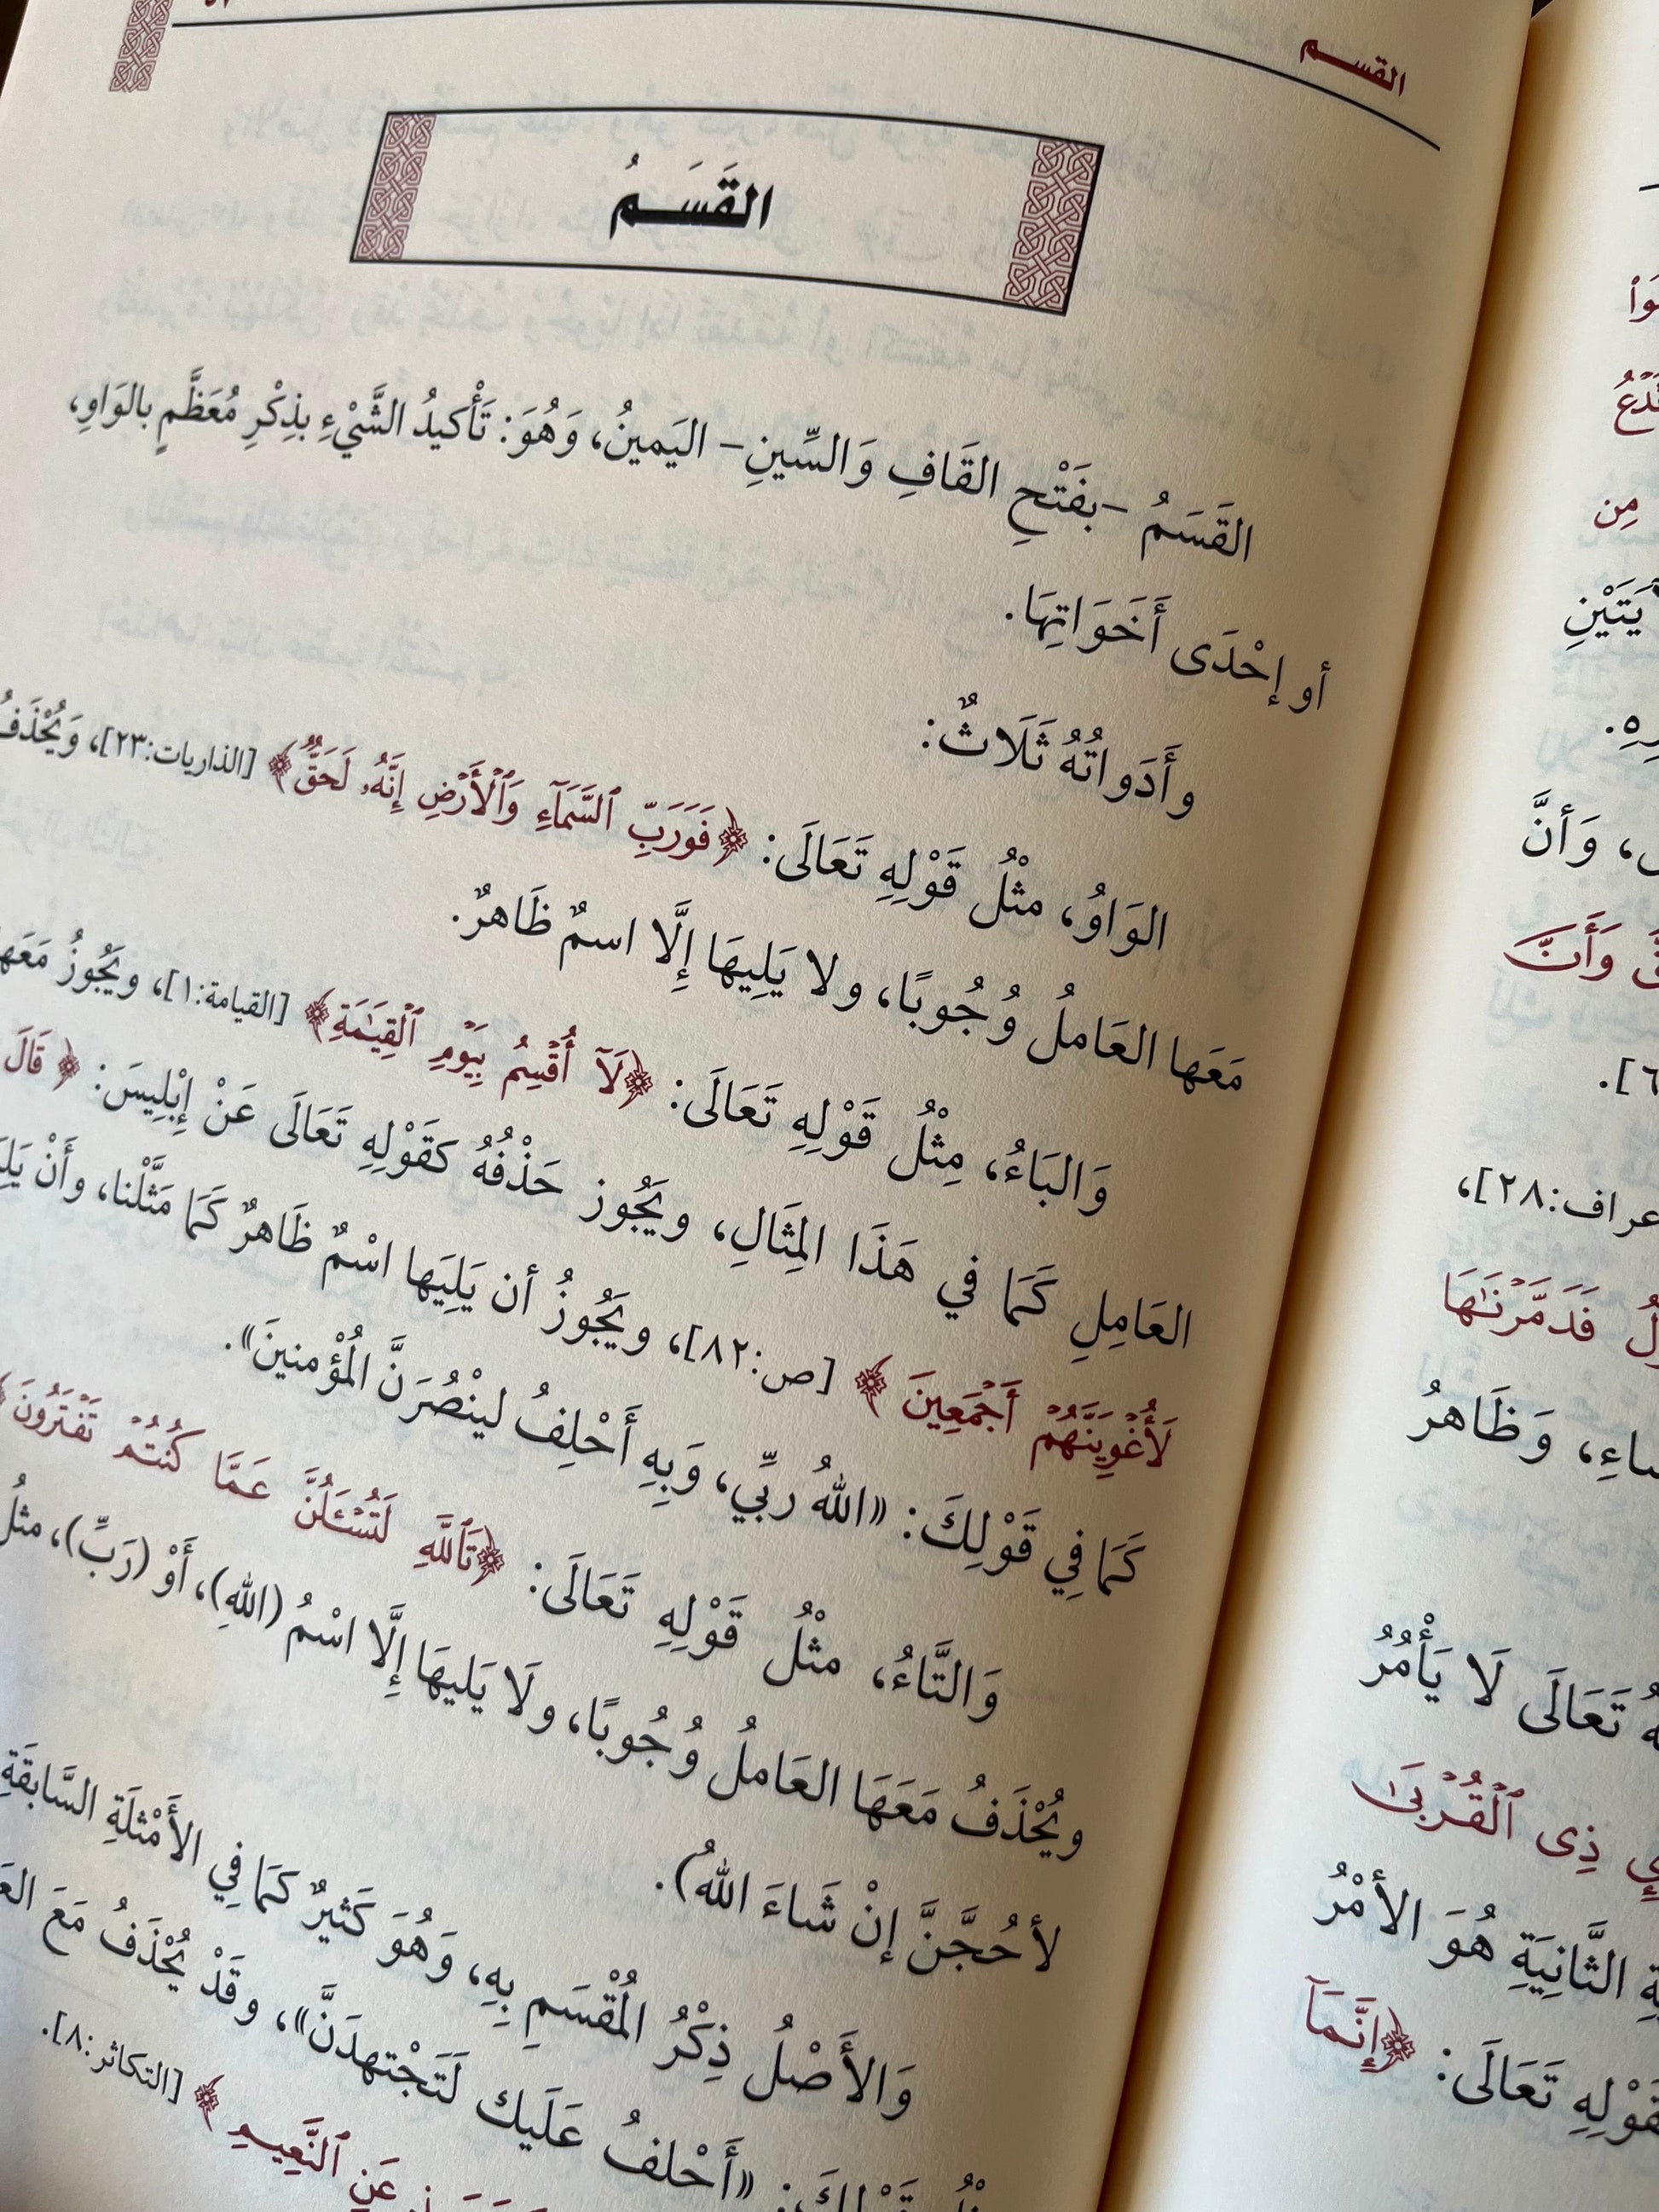 القسم
القَسَمُ
القَسَمُ -بفَتْحِ القَافِ وَالسِّينِ- اليَمينُ، وَهُوَ: تَأْكيدُ الشَّيْءِ بذِكْرِ مُعَظَّمٍ بالوَاوِ،
أو إحْدَى أَخَوَاتِهَا.
وأَدَواتُهُ ثَلَاثٌ:
الوَاوُ، مثْلُ قَوْلِهِ تَعَالَى: ﴿فَوَرَبِّ ٱلسَّمَآءِ وَٱلۡأَرۡضِ إِنَّهُۥ لَحَقّٞ﴾ [الذاريات:٢٣]، وَيُحْذَفُ
مَعَها العَاملُ وُجُوبًا، ولا يَلِيهَا إِلَّا اسمٌ ظَاهرٌ.
وَالبَاءُ، مِثْلُ قَوْلِهِ تَعَالَى: ﴿لَآ أُقۡسِمُ بِيَوۡمِ ٱلۡقِيَٰمَةِ﴾ [القيامة:١]، ويَجُوزُ مَعَها
العَامِلِ كَمَا في هَذَا المِثَالِ، ويَجُوز حَذْفُهُ كقَوْلِهِ تَعَالَى عَنْ إِبْلِيسَ: ﴿قَالَ
لَأُغۡوِيَنَّهُمۡ أَجۡمَعِينَ﴾ [ص:٨٢]، ويَجُوزُ أن يَلِيَها اسْمٌ ظَاهرٌ كَمَا مَثَّلْنا، وأَنْ
كَمَا فِي قَوْلِكَ: «اللهُ ربِّي، وَبِهِ أَحْلِفُ لينْصُرَنَّ المُؤْمنينَ».
وَالتَّاءُ، مثْلُ قَوْلِهِ تَعَالَى: ﴿تَٱللَّهِ لَتُسۡـَٔلُنَّ عَمَّا كُنتُمۡ تَفۡتَرُونَ﴾
ويُحْذَفُ مَعَهَا العَاملُ وُجُوبًا، ولَا يَليهَا إِلَّا اسْمُ (اللهِ)، أَوْ (رَبِّ)، مثلُ
لأحُجَّنَّ إنْ شَاءَ اللهُ).
وَالأَصْلُ ذِكْرُ المُقْسَمِ بِهِ، وَهُوَ كَثيرٌ كَمَا فِي الأَمْثلَةِ السَّابقَةِ
قَوْلكَ: «أَحْلفُ عَلَيك لَتَجْتهدَنَّ»، وقَدْ يُحْذَفُ مَعَ
عَنِ ٱلنَّعِيمِ﴾ [التكاثر:٨].
مِن
وَأنَّ
وَأَنَّ
[٢٨]،
فَدَمَّرۡنَٰهَا
وَظَاهرُ
تَعَالَى لَا يَأْمُرُ
ذِى ٱلۡقُرۡبَىٰ
الثَّانِيَةِ هُوَ الأمْرُ
قَوْلِهِ تَعَالَى: ﴿إِنَّمَآ